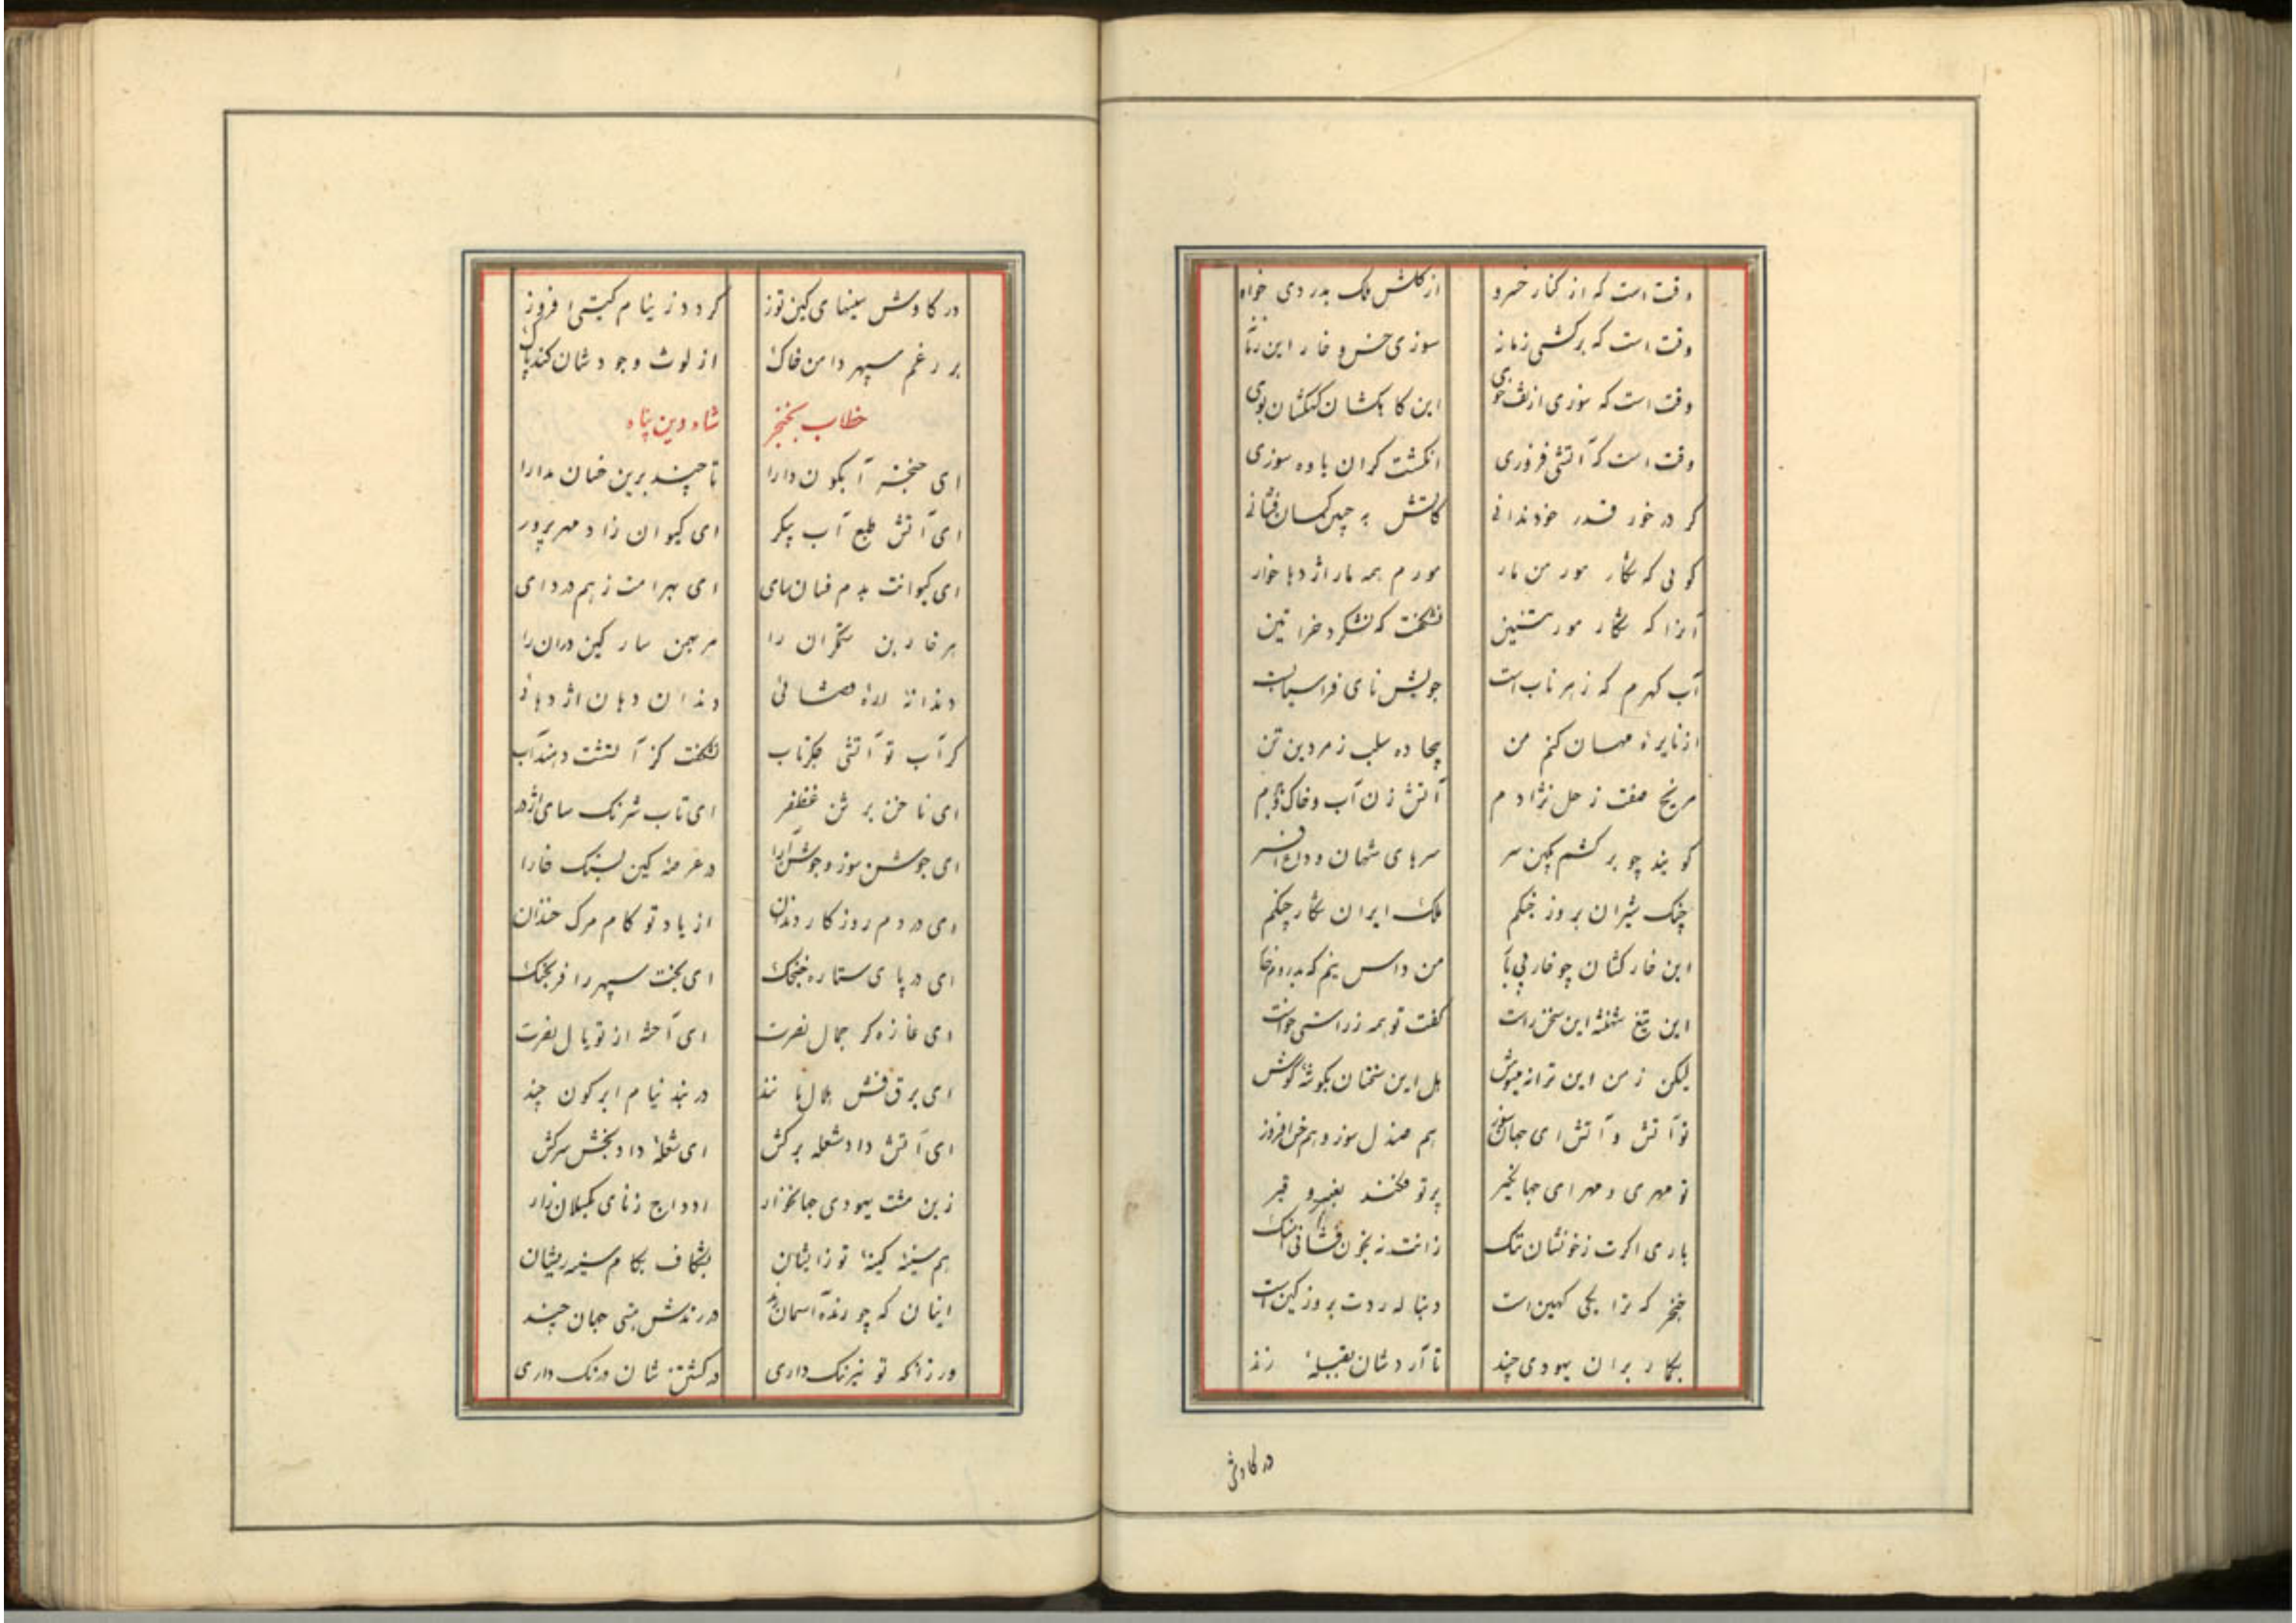 وقت است که از کنار خسرو از گلشن ملک بدروی خو
وقت است که برکشی زبانه سوزی خس و خار این
وقت است که سوزی از تف خوی این کاهکشان کهکشان پوی
وقت است که آتشی فروزی انکشت کران یاوه سوزی
کر در خور قدر خود ندانی کاتش به چمن کسان فشانی
کویی که شکار مور من مار مورم همه مار اژدها خوار
آنرا که شکار مور تنین نشکفت که نشکرد خراتین
آب کهرم که زهر ناب است جویش نای فراسیابست
از نایره میهمان کنم من بیجاده سلب زمردین تن
مریخ صفت زحل نژادم آتش زن آب و خاک و بادم
کویند چو برکشم بکین سر سرهای شهان وداع افسر
چنک شیران بروز جنکم ملک ایران شکار چنکم
این خارکنان چو خار من داس نیم که بدروم خار
این تیغ شهنشه این سخن راست کفت تو همه ز راستی خواست
لیکن ز من این ترانه مینوش هل این سخنان بکوشهٔ کوش
تو آتش و آتش ای جهانسوز هم صندل سوز و هم خس افروز
تو مهری و مهر ای جهانکیر پرتو فکند بعنبر و قیر
باری اکرت ز خونشان ننک زانت نه بخون فشانی آهنک
خنجر که ترا یکی کهین است دنباله ردت بروز کین است
بکمار بران یهودی چند تا آردشان بقبیله زند
در کاوش
در کاوش سینهای کین توز کردد ز نیام کیتی افروز
بر رغم سپهر دامن خاک از لوث وجودشان کند پاک
خطاب بخنجر شاه دین پناه
ای خنجر آبکون دارا تا چند برین خسان مدارا
ای آتش طبع آب پیکر ای کیوان زاد مهر پرور
ای کیوانت بدم فسان سای ای بهرامت ز بیم دروای
هر خاربن ستمکران را مر بهمن سار کین دران را
دندانهٔ لاله فشانی دندان دهان اژدهانی
کر آب تو آتشی جکرتاب نشکفت کز آتشت دهند آب
ای ناخن ببر تن غضنفر ای تاب شرنک سای اژدر
ای جوشن سوز و جوشن آرا در عرصه کین نهنک خارا
ای در دم روزکار دندان از یاد تو کام مرک خندان
ای در پای ستاره خنجک ای بخت سپهر را فرنجک
ای غازه کر جمال نصرت ای آخته از تو یال نصرت
ای برق فش هلال مانند در بند نیام ابرکون چند
ای آتش داد شعله برکش ای شعلهٔ داد بخش سرکش
زین مشت یهودی جهانخوار اوداج ز نای بکسلان زار
هم سینهٔ کینه توز ایشان بشکاف بکام سینه ریشان
اینان که چو رنده آسمان رند در رندش بینی جهان چند
ور زانکه تو نیز ننک داری در کشتن شان درنک داری